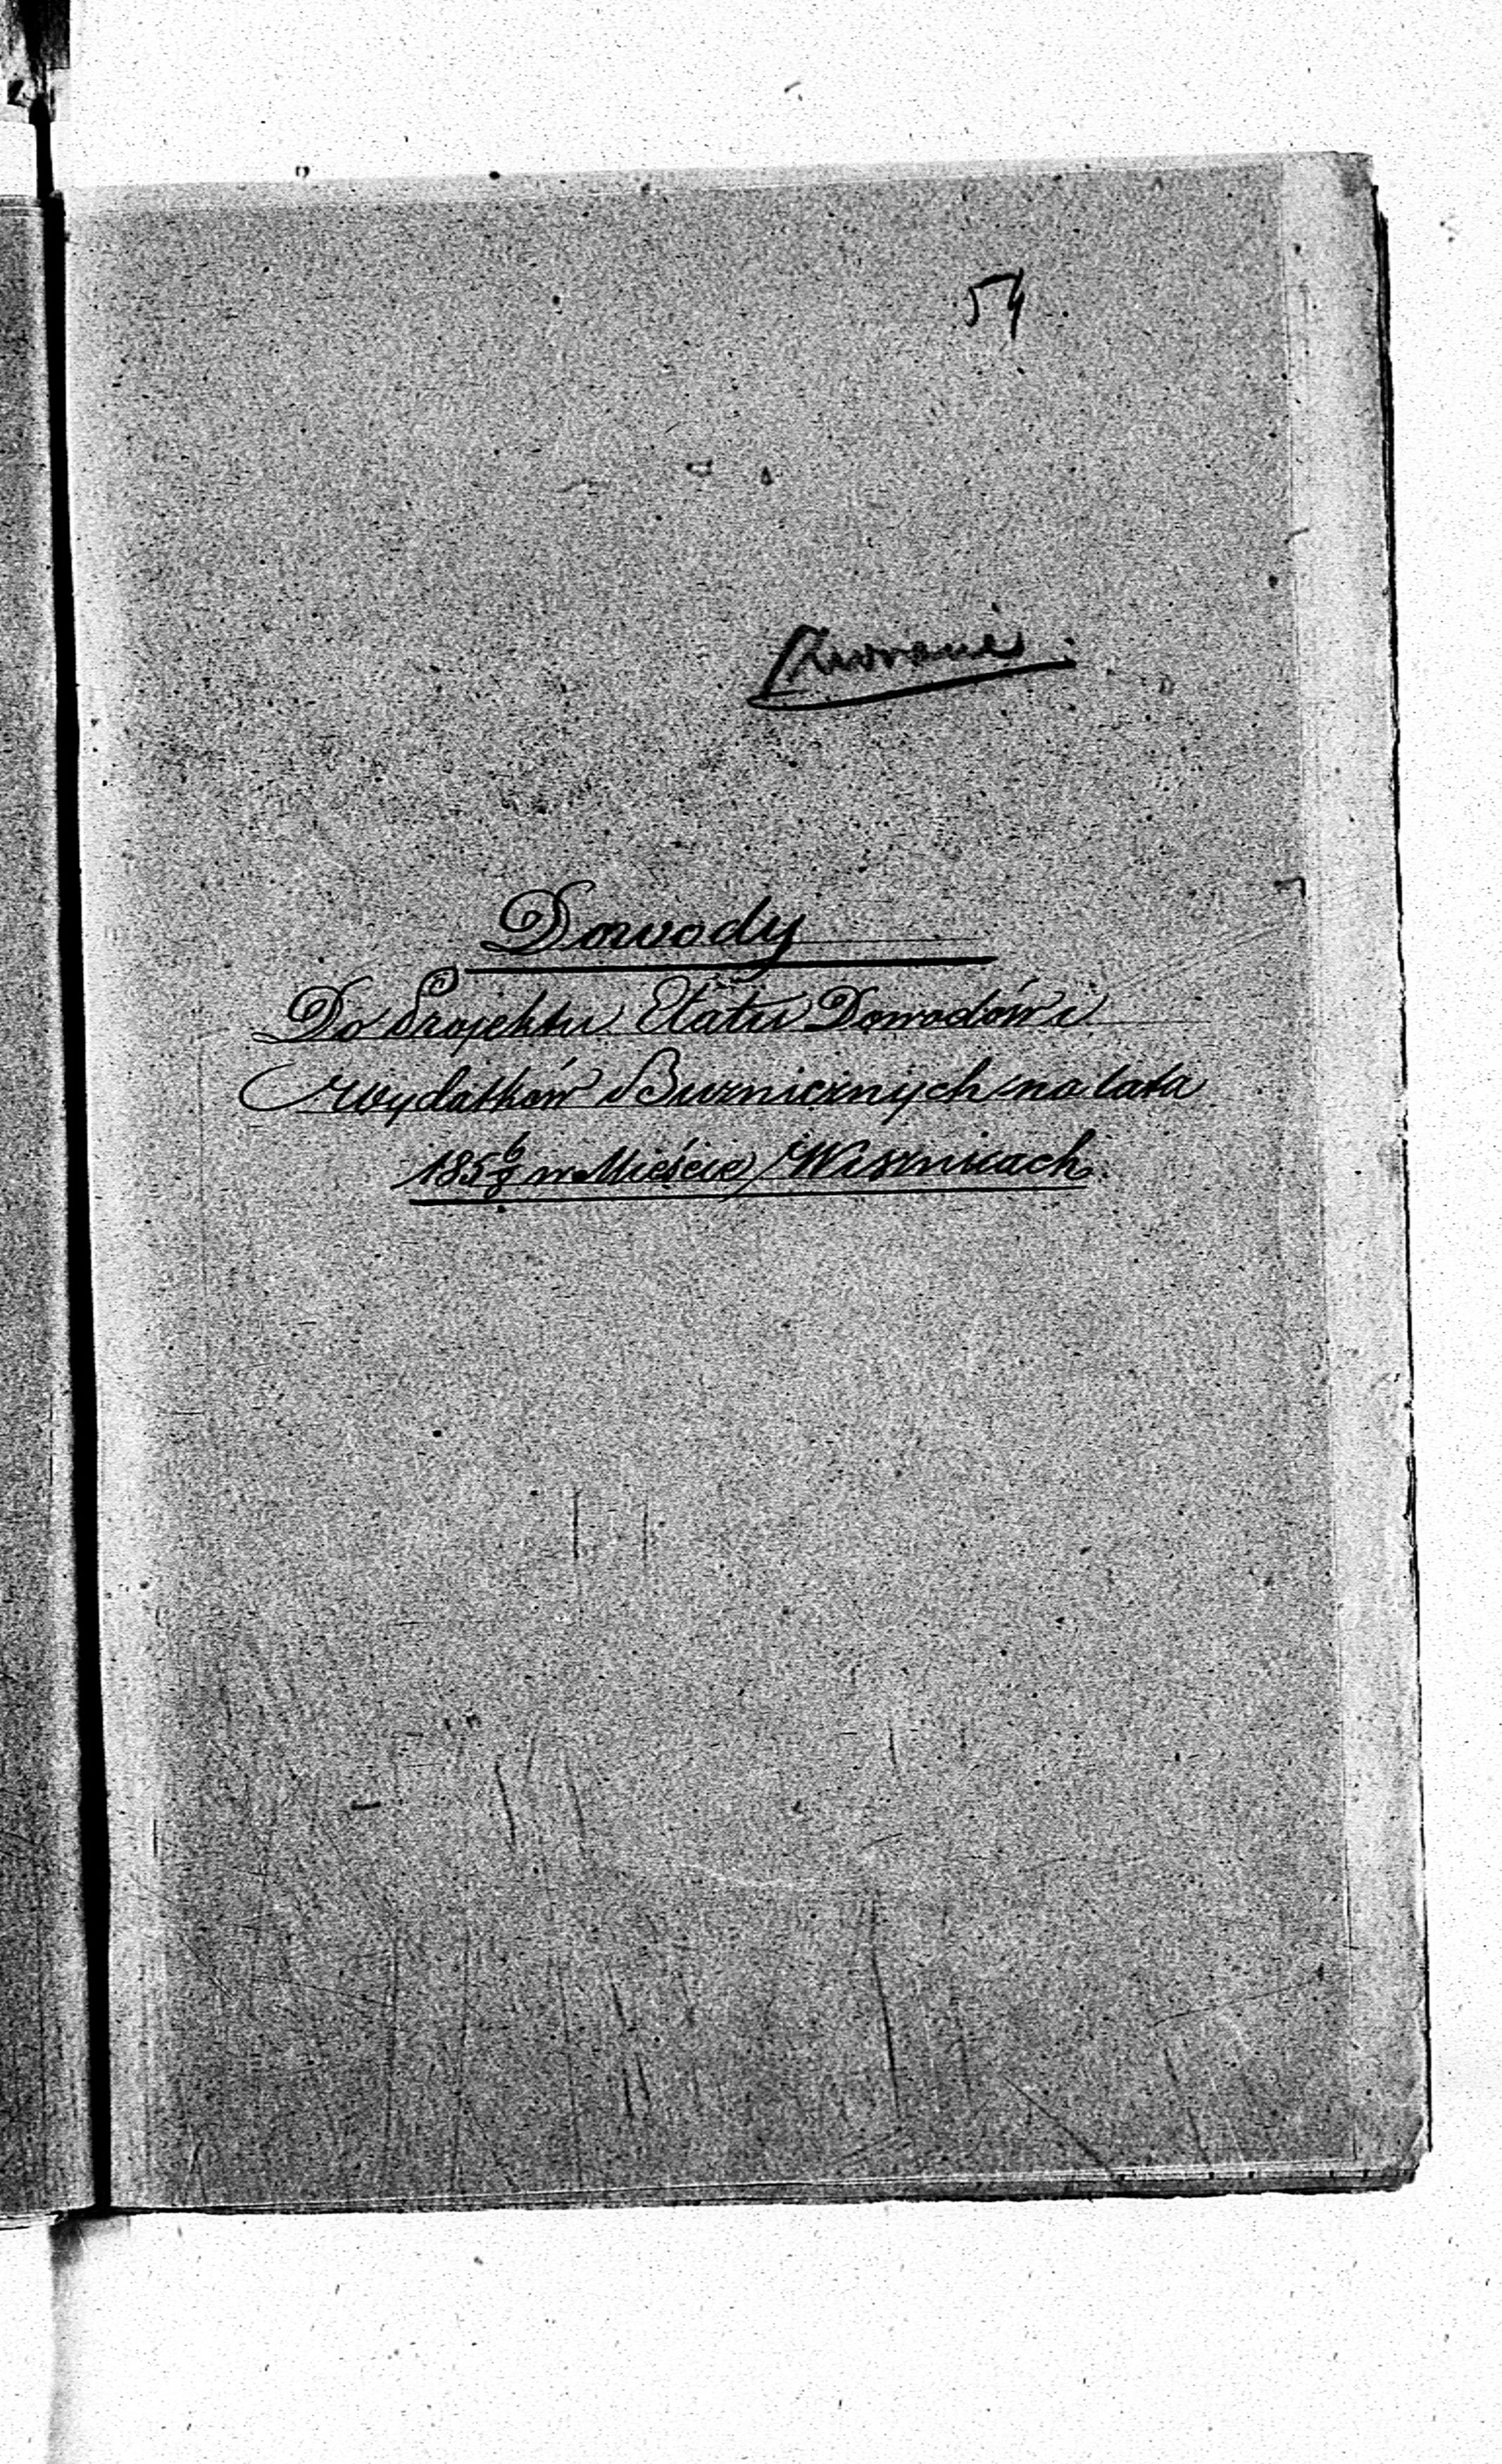 54
Dowody
Do Projektu Etatu Dowodów i
wydatków Buznicznych na lata
185 6/8 w Mieście Wisznicach.